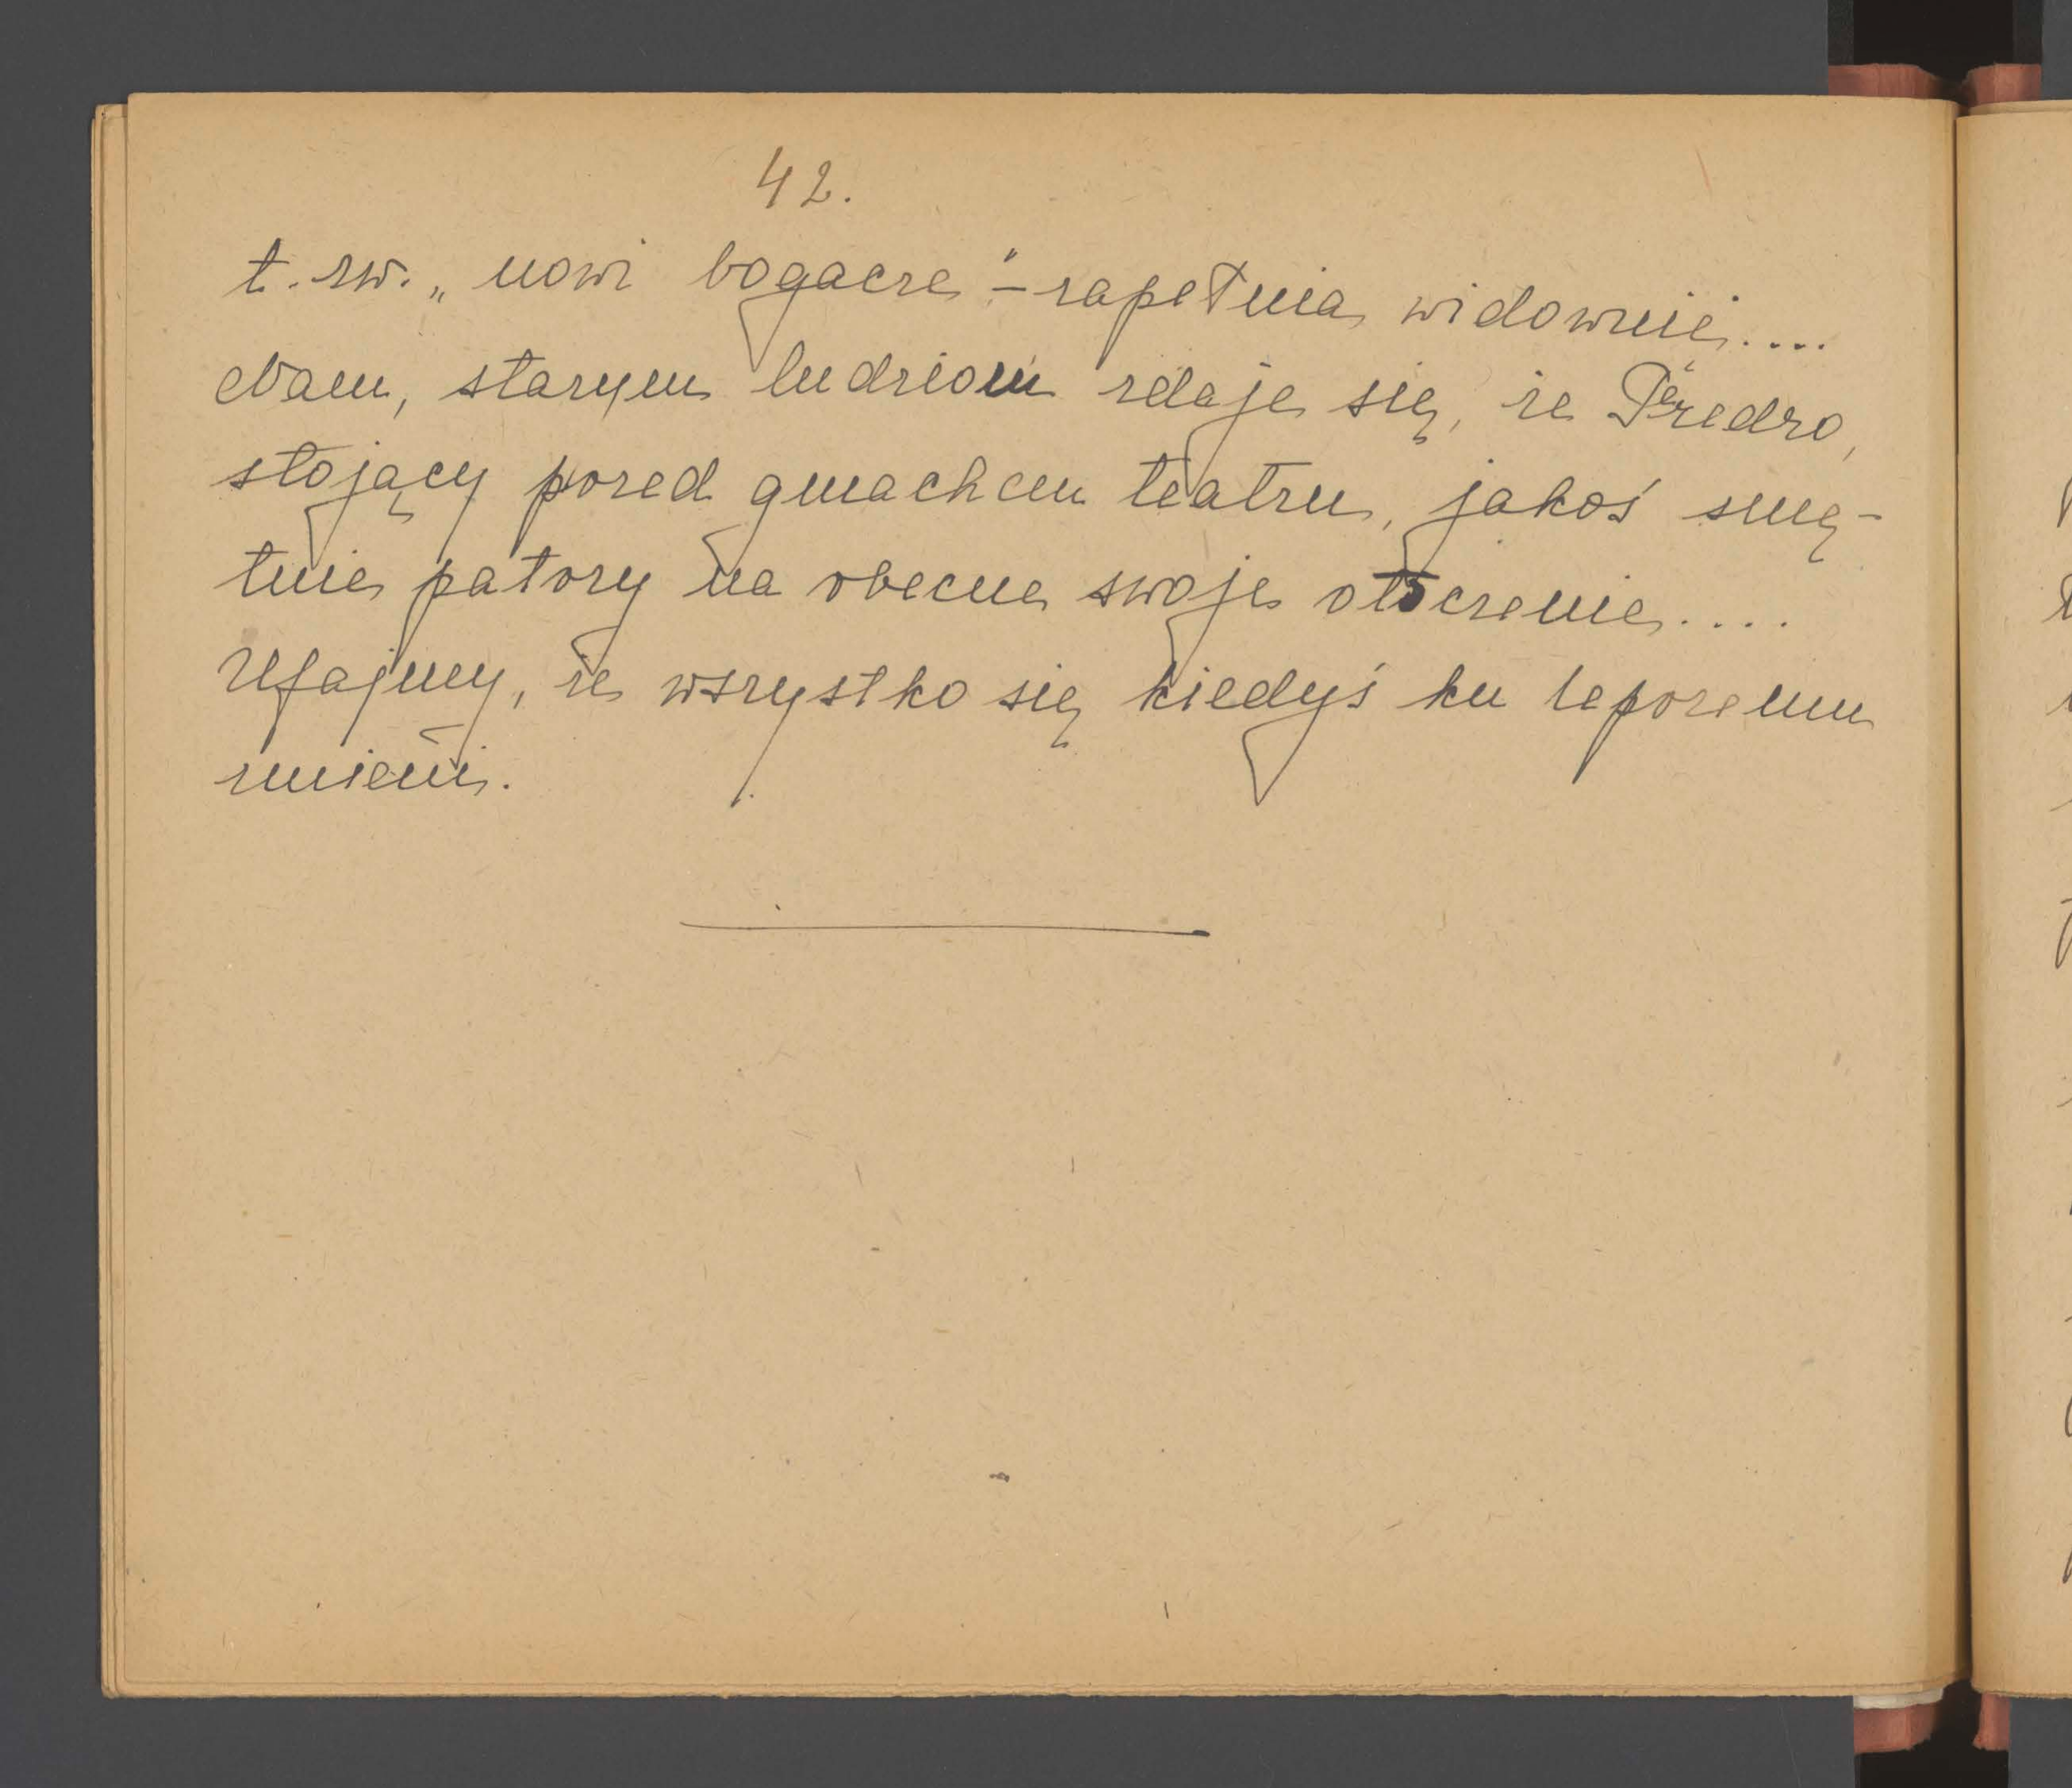 42.
t. zw. „nowi bogacze“ – zapełnia widownię....
Nam, starym ludziom zdaje się, że Fredro,
stojący pozed gmachem teatru, jakoś smę-
tnie patrzy na obecne swoje otoczenie....
Ufajmy, że wszystko się kiedyś ku lepszemu
zmieni.